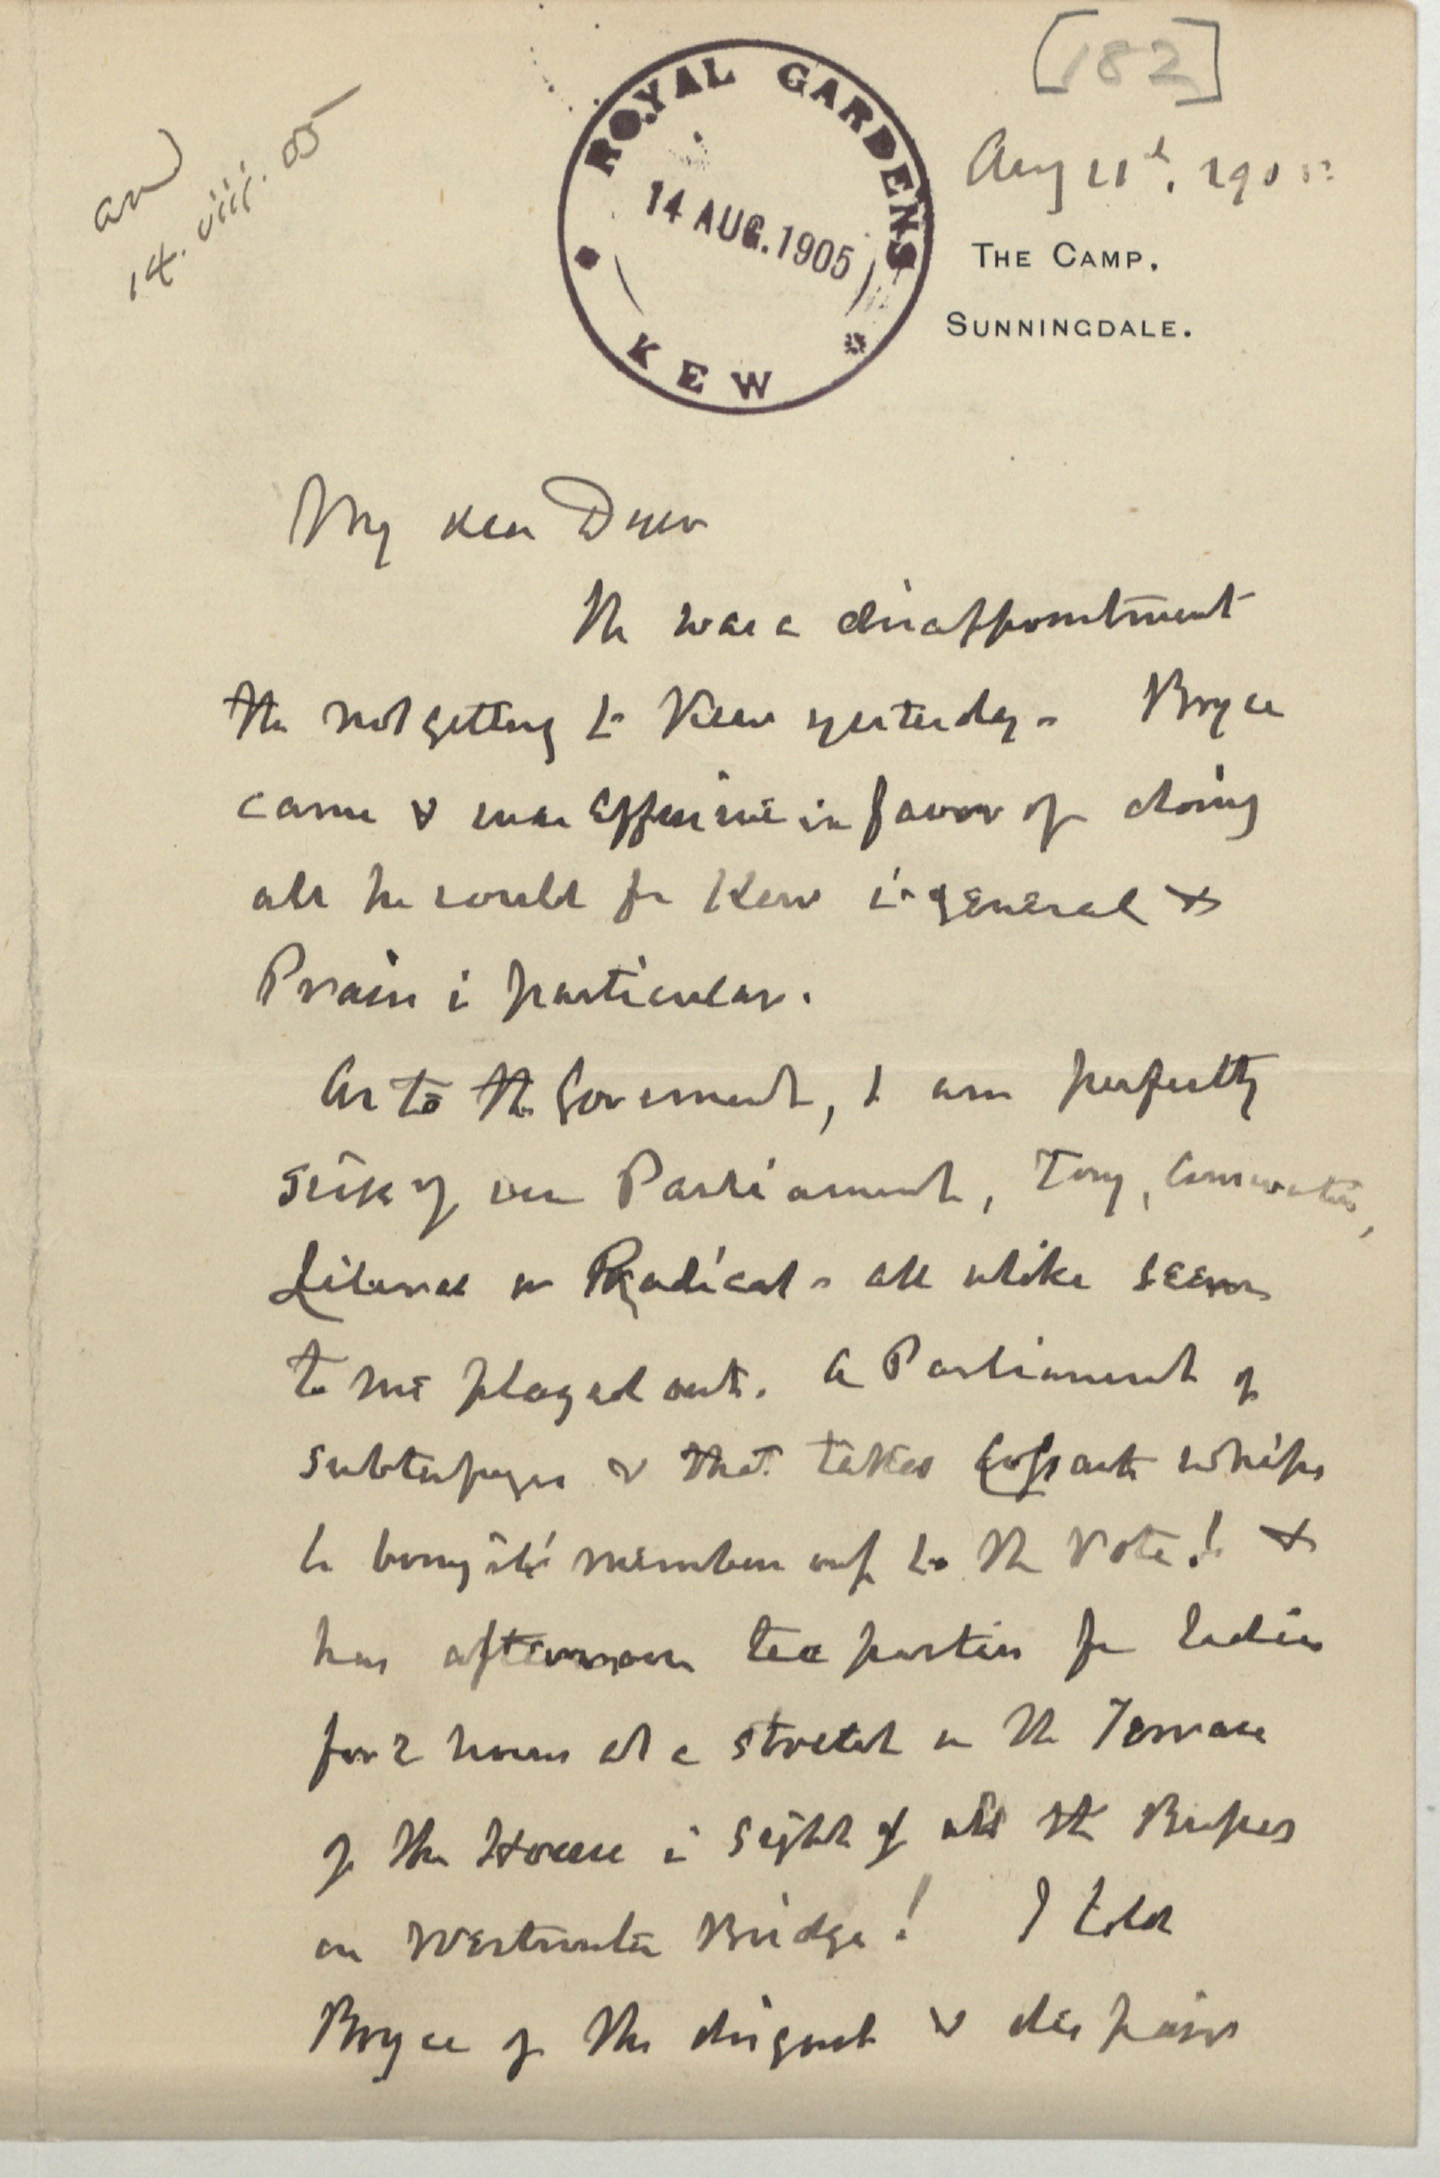 [182]
and
14. viii. 05
ROYAL GARDENS
14 AUG. 1905
KEW
Aug 11th. 1905
THE CAMP,
SUNNINGDALE.
My dear Dyer
It was a disappointment
the not getting to Kew yesterday. Bryce
came & was effusive in favor of doing
all he could for Kew in general &
Prain in particular.
As to the Government, I am perfectly
sick of our Parliament, Tory, Conservative,
Liberal or Radical - all alike seem
to me played out. A Parliament of
subterfuges & that takes Cossack whips
to bring its members up to the vote! &
has afternoon tea parties for ladies
for 2 hours at a stretch on the Terrace
of the House in sight of all the Bupes
on Westminster Bridge! I told
Bryce of the disgust & despair